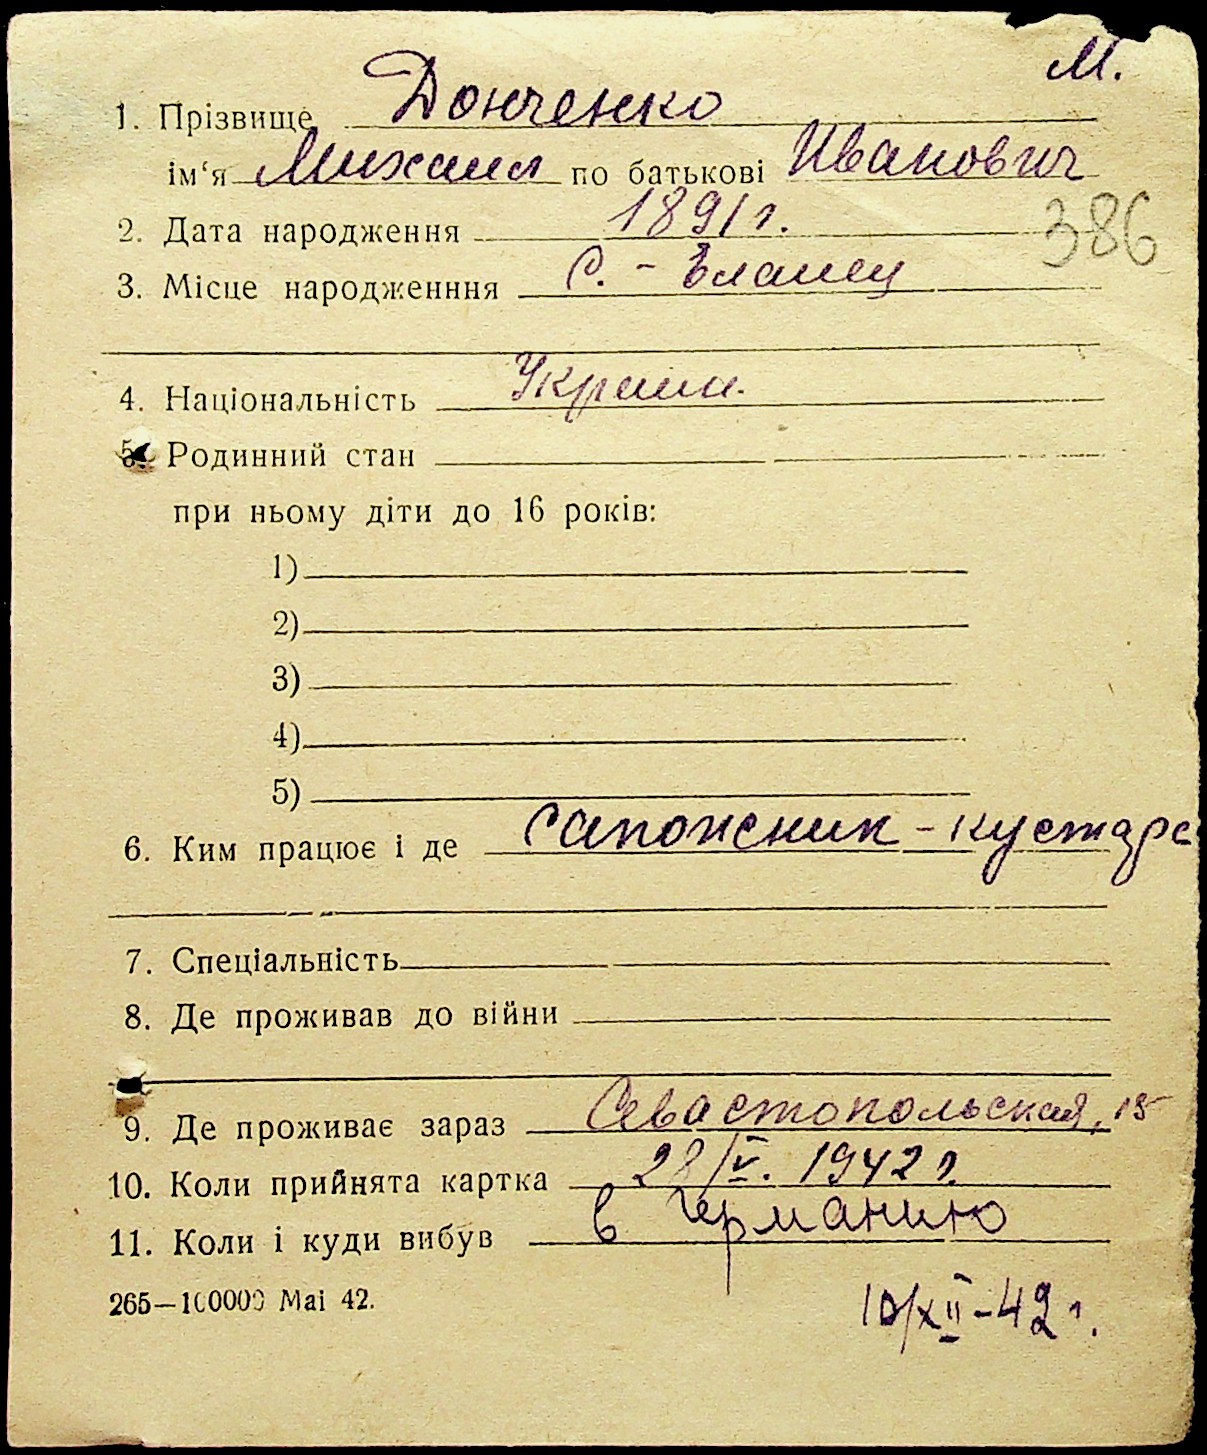 М.
1. Прізвище Донченко
ім‘я Михаил по батькові Иванович
2. Дата народження 1891 г.
386
3. Місце народженння С. - Еланец
4. Національність Украин.
5. Родинний стан
при ньому діти до 16 років:
1)
2)
3)
4)
5)
6. Ким працює і де сапожник - кустарь
7. Спеціальність
8. Де проживав до війни
9. Де проживає зараз Севастопольская, 15
10. Коли прийнята картка 28/V. 1942 г.
11. Коли і куди вибув в Германию
265—100000 Маі 42.
10/XII-42 г.